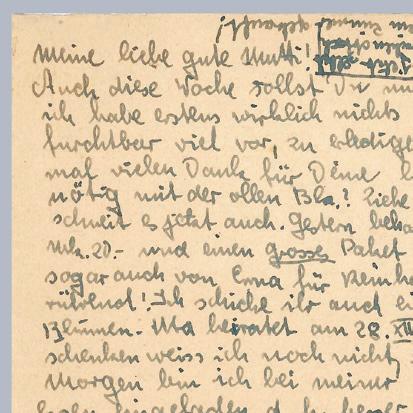 Meine liebe gute Mutti!
Auch diese Woche sollst Du nu
ich habe erstens wirklich nichts
furchtbar viel vor, zu erledige
mal vielen Dank für Deine l
nötig mit der ollen Bla.? Siehe
schneit es jetzt auch. Gestern beka
Mk. 20.- und einen grosse Paket
sogar auch von Erna für Reinh
rührend! Ich schicke ihr auch e
Blumen. Uta heiratet am 28. XII
schenken weiss ich noch nicht
Morgen bin ich bei meiner
eingeladen